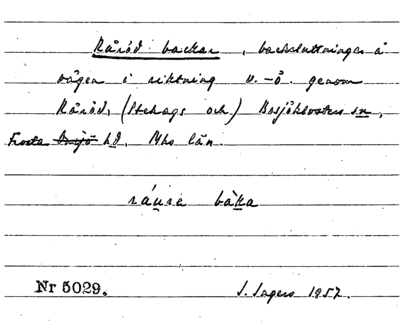 Råröd backar, backsluttningar å
vägen i riktning v.-ö. genom
Råröd, (Stehags och) Bosjöklosters sn,
Frosta Bosjö hd, Mhs län.
ráura bàka
Nr 5029. J. Sagers 1957.